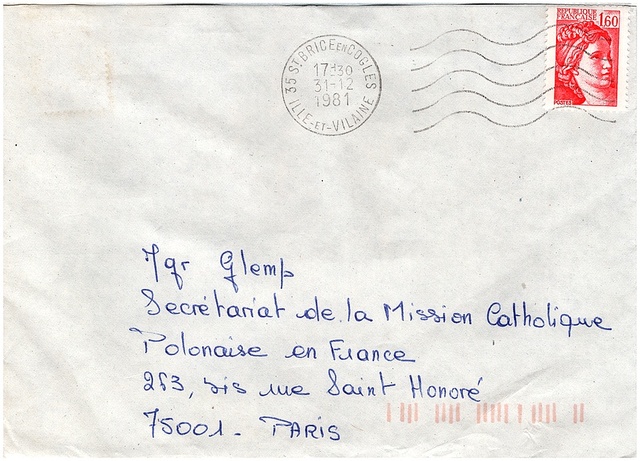 REPUBLIQUE FRANÇAISE 1,60
POSTES
35 ST BRICE EN COGLES
17H30
31-12
1981
ILLE-ET-VILAINE
Mgr Glemp
Secrétariat de la Mission Catholique
Polonaise en France
263, bis rue Saint Honoré
75001 - PARIS